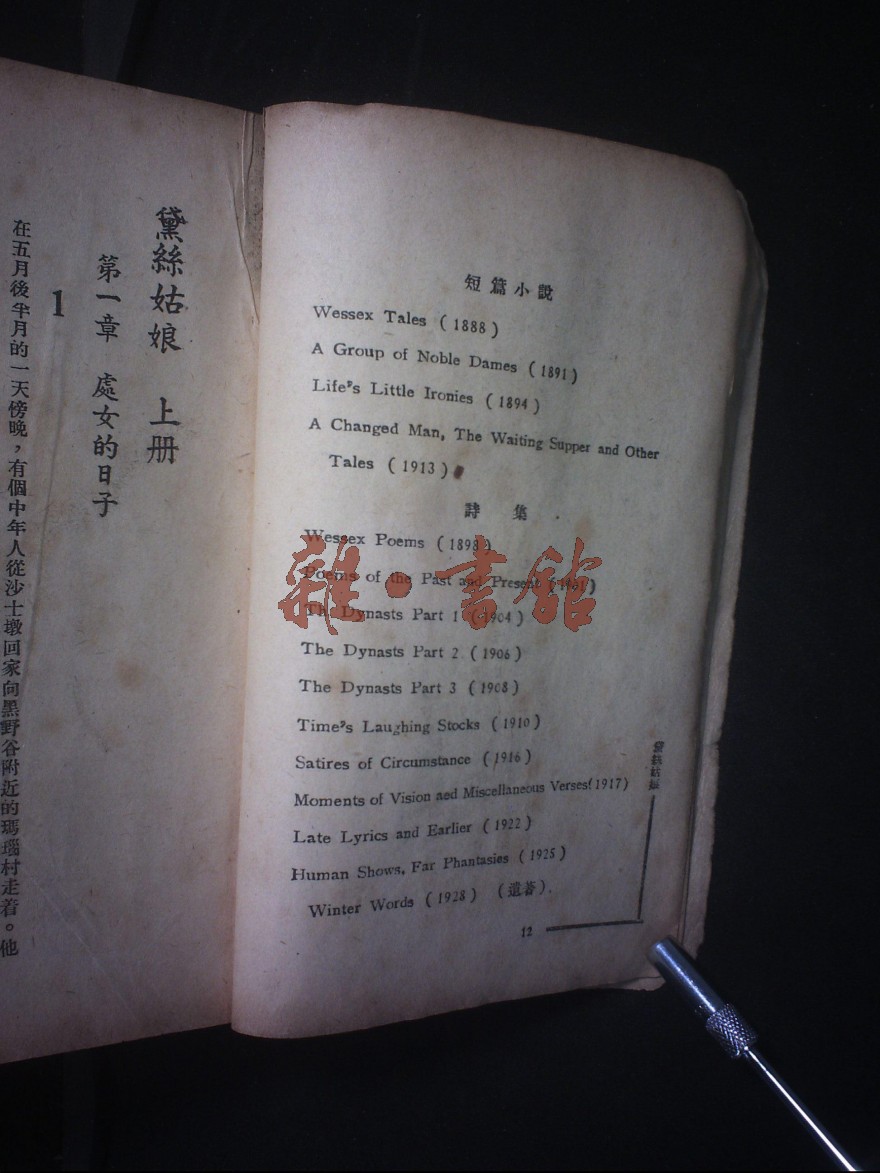 短篇小說
Wessex Tales (1888)
A Group of Noble Dames (1891)
Life's Little Ironies (1894)
A Changed Man, The Waiting Supper and Other
Tales (1913)
詩集
Wessex Poems (1898)
Poems of the Past and Present (1901)
The Dynasts Part 1 (1904)
The Dynasts Part 2 (1906)
The Dynasts Part 3 (1908)
Time's Laughing Stocks (1910)
Satires of Circumstance (1916)
Moments of Vision aed Miscellaneous Verses(1917)
Late Lyrics and Earlier (1922)
Human Shows, Far Phantasies (1925)
Winter Words (1928) (遺著).
黛絲姑娘
12
黛絲姑娘 上册
第一章 處女的日子
1
在五月後半月的一天傍晚，有個中年人從沙士墩回家向黑野谷附近的瑪瑙村走着。他
雜·書館